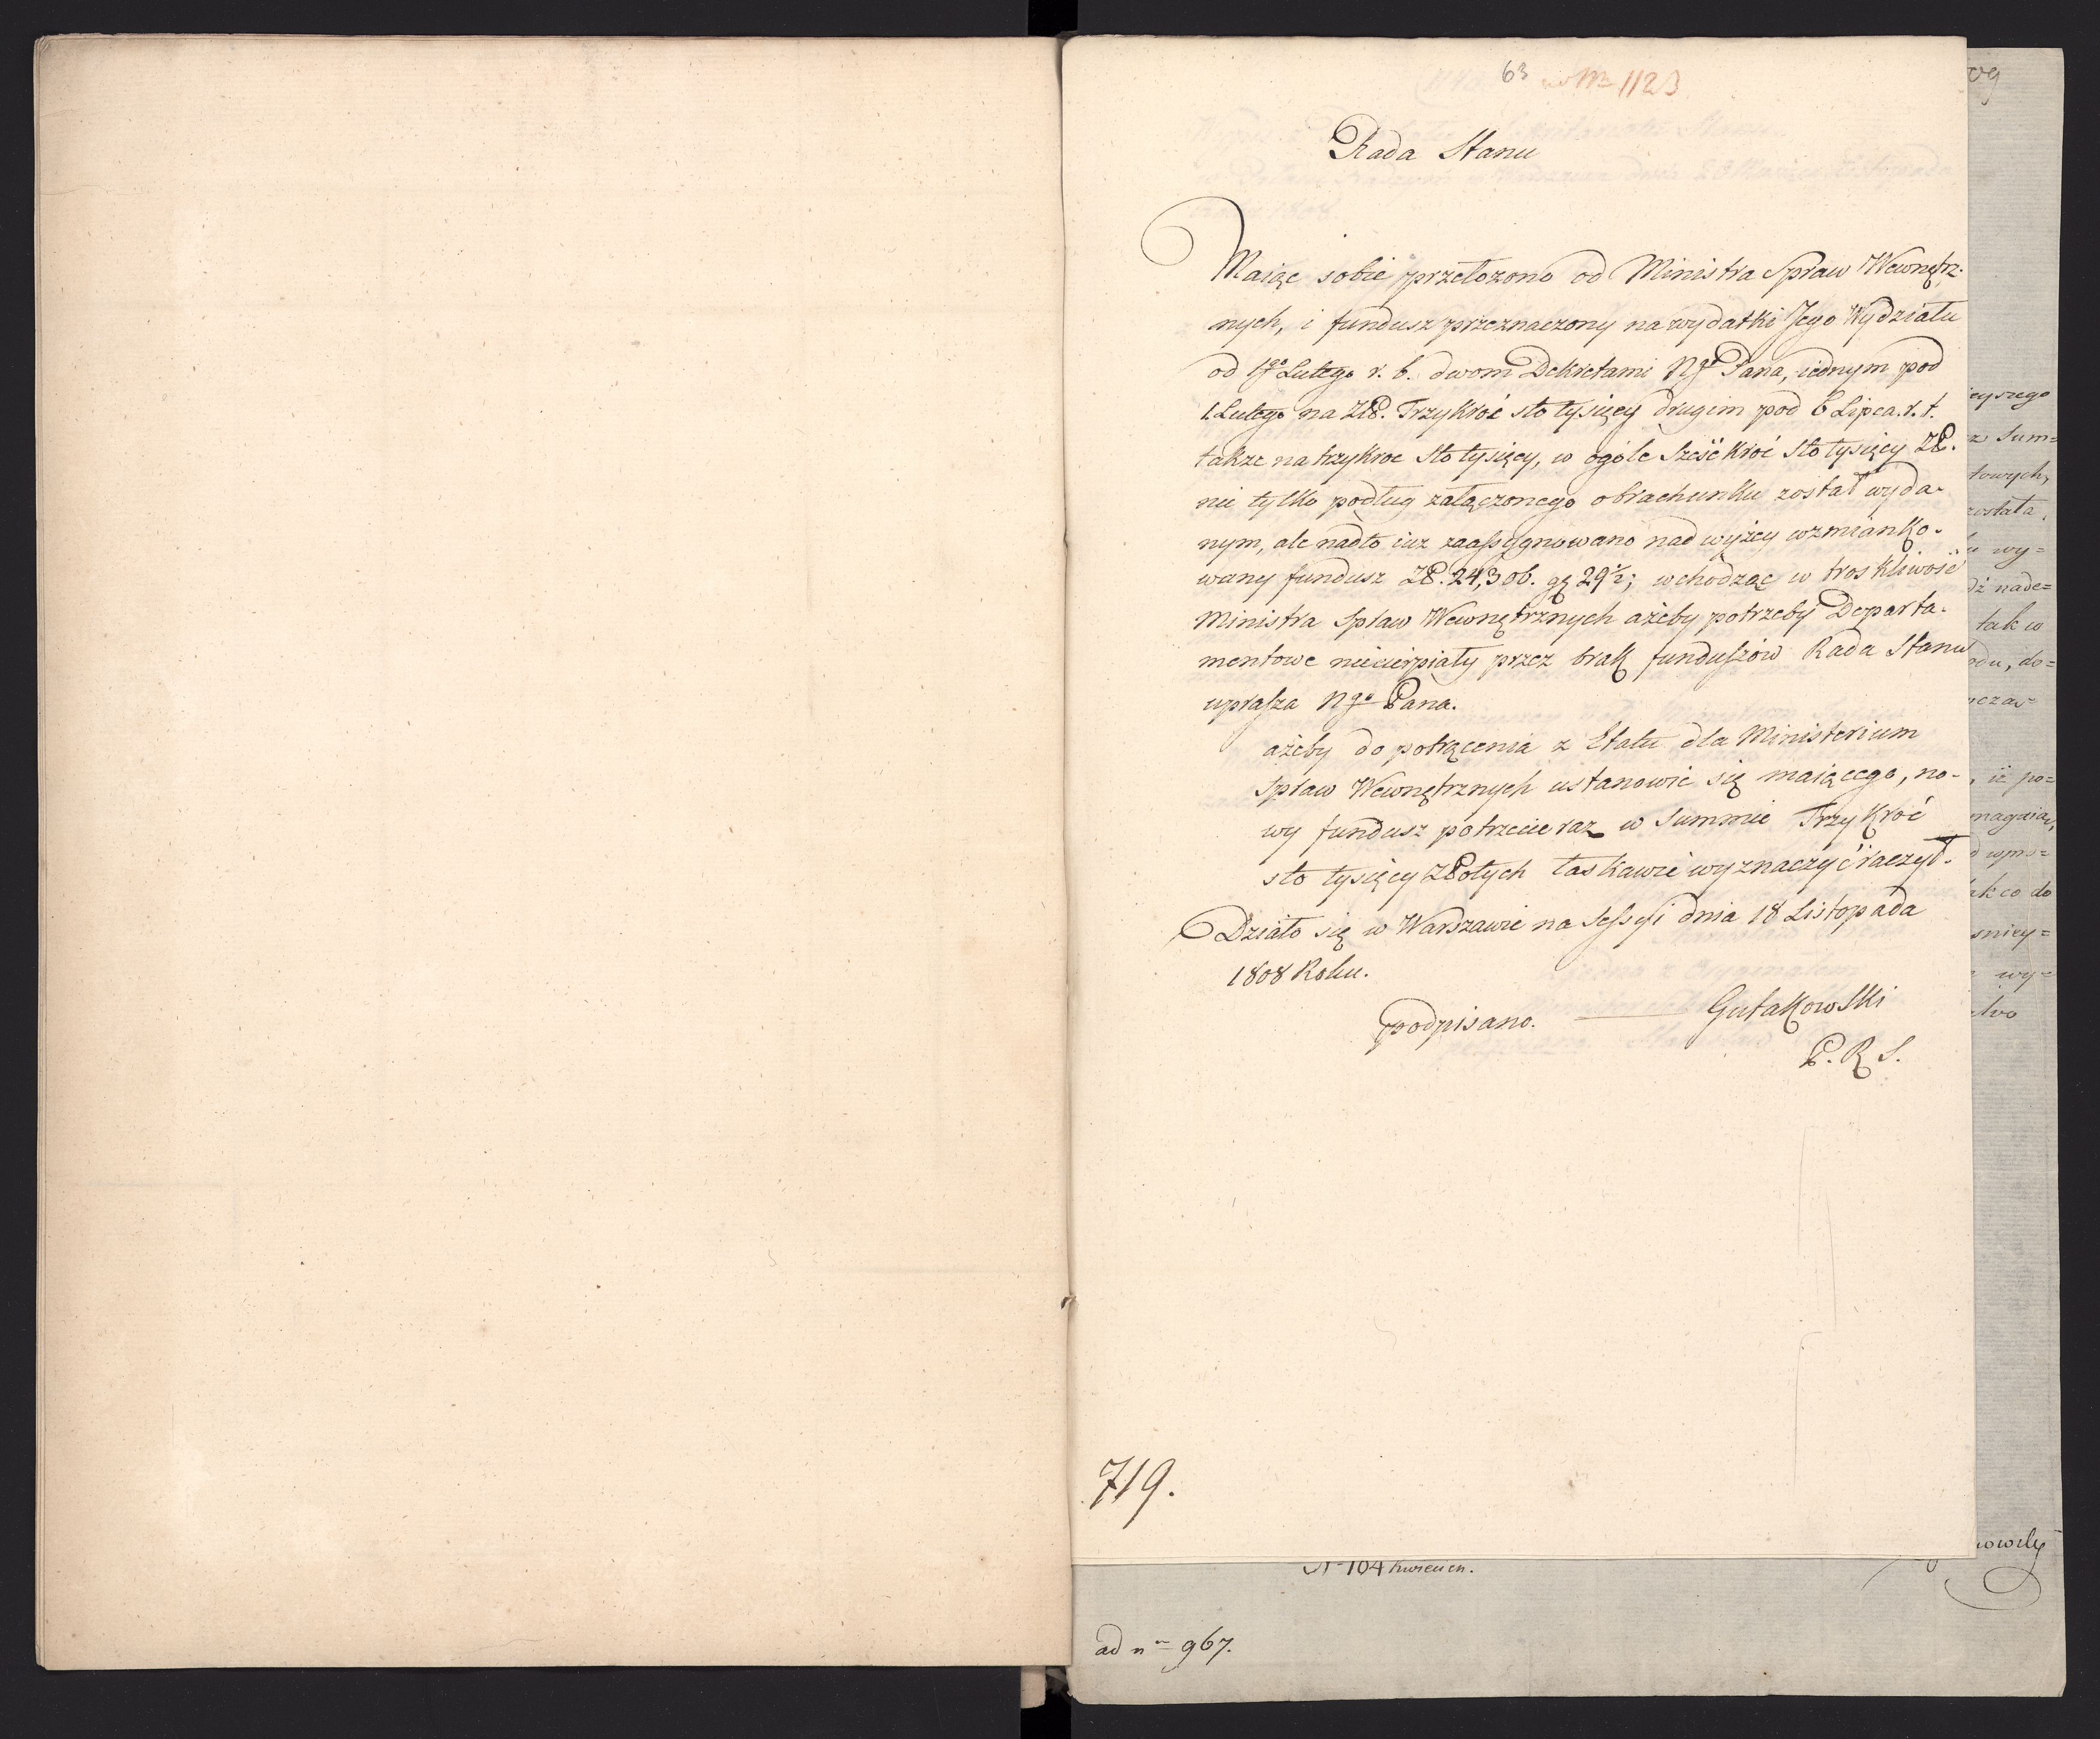 63 ad Nr 1123
Rada Stanu
Maiąc sobie przełożono od Ministra Spraw Wewnętrz-
nych, i fundusz przeznaczony na wydatki Jego Wydziału
od 1go Lutego r. b. dwom Dekretami Ngo Pana, iednym pod
1 Lutego na ZłP. Trzykroć sto tysięcy drugim pod 6 Lipca r. t.
także na trzykroc Sto tysięcy, w ogóle Sześćkroć Sto tysięcy ZP.
nie tylko podług załączonego obrachunku został wyda-
nym, ale nadto iuz zaassygnowano nad wyżey wzmianko-
wany fundusz ZP. 24,306. gę 29½; wchodząc w troskliwość
Ministra Spraw Wewnętrznych ażeby potrzeby Departa-
mentowe niecierpiały przez brak funduszów Rada Stanu
uprasza Ngo Pana.
ażeby do potrącenia z Etatu dla Ministerium
Spraw Wewnętrznych ustanowić się maiącego, no-
wy fundusz potrzecie raz w Summie Trzykroć
sto tysięcy ZPotych łaskawie wyznaczyć raczył.
Działo się w Warszawie na Sessyi dnia 18 Listopada
1808 Roku.
podpisano. Gutakowski
P. R S.
719.
ad nr 967.
rzyszego
z Sum=
towych,
została,
wy=
dź nade=
tak w
odu, do=
czas
iż po=
magaiąc,
ak co do
śniey=
wy=